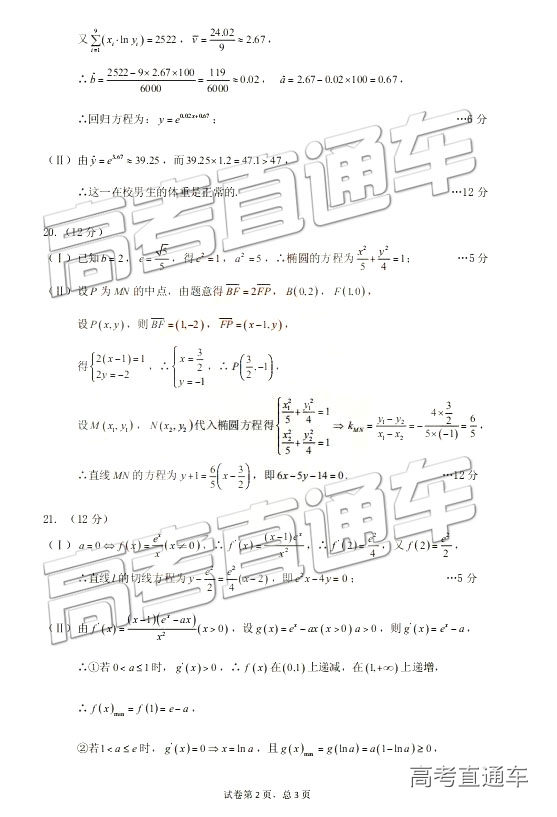 又 $\sum_{i=1}^{9}(x_i \cdot \ln y_i) = 2522$，$\bar{v} = \frac{24.02}{9} \approx 2.67$，
∴ $\hat{b} = \frac{2522 - 9 \times 2.67 \times 100}{6000} = \frac{119}{6000} \approx 0.02$， $\hat{a} = 2.67 - 0.02 \times 100 = 0.67$，
∴回归方程为：$y = e^{0.02x+0.67}$； …6 分
（Ⅱ）由 $\hat{y} = e^{3.67} \approx 39.25$，而 $39.25 \times 1.2 = 47.1 > 47$，
∴这一在校男生的体重是正常的. …12 分
20.（12 分）
（Ⅰ）已知 $b = 2$，$e = \frac{\sqrt{5}}{5}$，得 $c^2 = 1$，$a^2 = 5$，∴椭圆的方程为 $\frac{x^2}{5} + \frac{y^2}{4} = 1$； …5 分
（Ⅱ）设 $P$ 为 $MN$ 的中点，由题意得 $\overline{BF} = 2\overline{FP}$，$B(0,2)$，$F(1,0)$，
设 $P(x,y)$，则 $\overline{BF} = (1,-2)$，$\overline{FP} = (x-1,y)$，
得 $\begin{cases} 2(x-1) = 1 \\ 2y = -2 \end{cases}$，∴ $\begin{cases} x = \frac{3}{2} \\ y = -1 \end{cases}$，∴ $P\left(\frac{3}{2},-1\right)$，
设 $M(x_1,y_1)$，$N(x_2,y_2)$ 代入椭圆方程得 $\begin{cases} \frac{x_1^2}{5} + \frac{y_1^2}{4} = 1 \\ \frac{x_2^2}{5} + \frac{y_2^2}{4} = 1 \end{cases} \Rightarrow k_{MN} = \frac{y_1 - y_2}{x_1 - x_2} = -\frac{4 \times \frac{3}{2}}{5 \times (-1)} = \frac{6}{5}$，
∴直线 $MN$ 的方程为 $y+1 = \frac{6}{5}\left(x - \frac{3}{2}\right)$，即 $6x - 5y - 14 = 0$. …12 分
21.（12 分）
（Ⅰ）$a = 0 \Leftrightarrow f(x) = \frac{e^x}{x}(x \neq 0)$，∴ $f'(x) = \frac{(x-1)e^x}{x^2}$，∴ $f'(2) = \frac{e^2}{4}$，又 $f(2) = \frac{e^2}{2}$，
∴直线 $l$ 的切线方程为 $y - \frac{e^2}{2} = \frac{e^2}{4}(x-2)$，即 $e^2x - 4y = 0$； …5 分
（Ⅱ）由 $f'(x) = \frac{(x-1)(e^x - ax)}{x^2}(x > 0)$，设 $g(x) = e^x - ax(x > 0)\ a > 0$，则 $g'(x) = e^x - a$，
∴①若 $0 < a \le 1$ 时，$g'(x) > 0$，∴ $f(x)$ 在 $(0,1)$ 上递减，在 $(1,+\infty)$ 上递增，
∴ $f(x)_{\min} = f(1) = e - a$，
②若 $1 < a \le e$ 时，$g'(x) = 0 \Rightarrow x = \ln a$，且 $g(x)_{\min} = g(\ln a) = a(1 - \ln a) \ge 0$，
试卷第 2 页，总 3 页
高考直通车
高考直通车
高考直通车
高考直通车